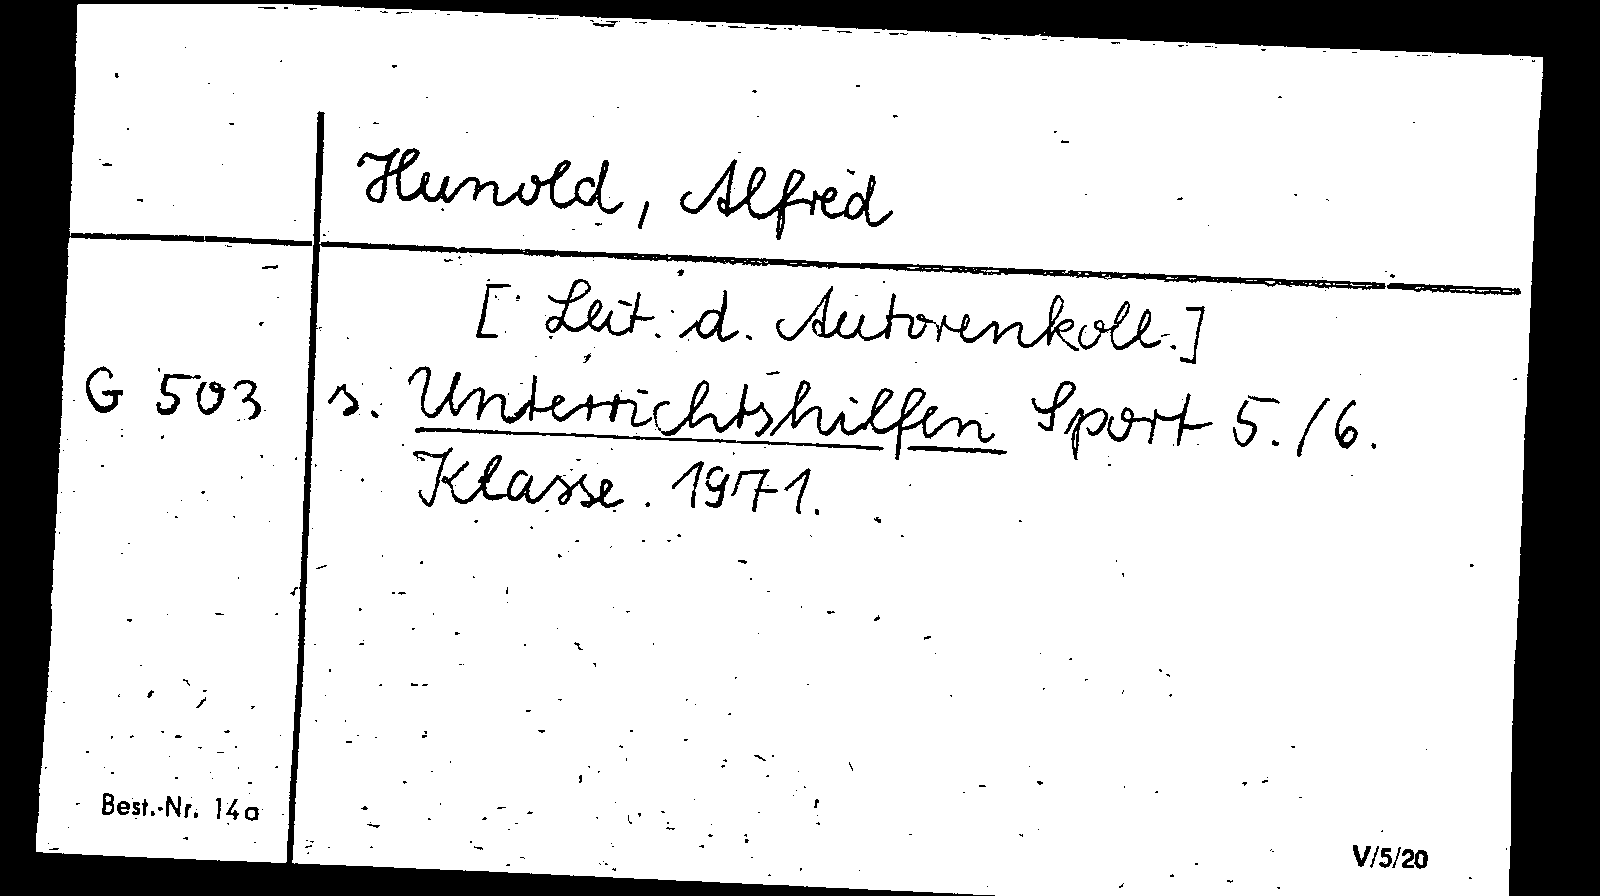 Hunold, Alfred
[Leit. d. Autorenkoll.]
G 503 s. Unterrichtshilfen Sport 5./6.
Klasse. 1971.
Best.-Nr. 14a
V/5/20